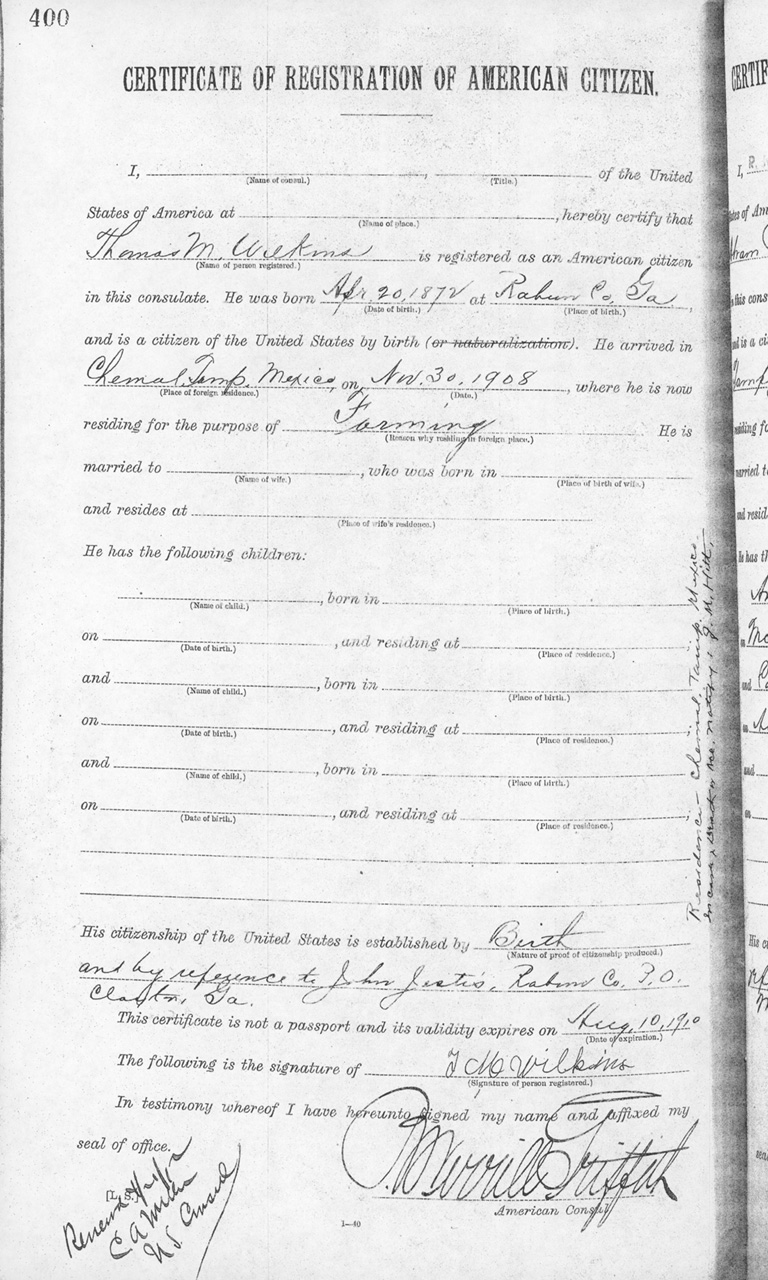 400
CERTIFICATE OF REGISTRATION OF AMERICAN CITIZEN.
I, , of the United
(Name of consul.) (Title.)
States of America at , hereby certify that
(Name of place.)
Thomas M. Wilkins is registered as an American citizen
(Name of person registered.)
in this consulate. He was born Apr. 20, 1872 at Rabun Co, Ga,
(Date of birth.) (Place of birth.)
and is a citizen of the United States by birth (or naturalization). He arrived in
Chemal, Tamp. Mexico, on Nov. 30, 1908, where he is now
(Place of foreign residence.) (Date.)
residing for the purpose of Farming He is
(Reason why residing in foreign place.)
married to , who was born in
(Name of wife.) (Place of birth of wife.)
and resides at
(Place of wife's residence.)
He has the following children:
, born in
(Name of child.) (Place of birth.)
on , and residing at
(Date of birth.) (Place of residence.)
and , born in
(Name of child.) (Place of birth.)
on , and residing at
(Date of birth.) (Place of residence.)
and , born in
(Name of child.) (Place of birth.)
on , and residing at
(Date of birth.) (Place of residence.)
His citizenship of the United States is established by Birth
(Nature of proof of citizenship produced.)
and by reference to John Justis, Rabun Co. P.O.
Clayton, Ga.
This certificate is not a passport and its validity expires on Aug. 10, 1910
(Date of expiration.)
The following is the signature of T M Wilkins
(Signature of person registered.)
In testimony whereof I have hereunto signed my name and affixed my
seal of office.
P. Merrill Griffith
[L. S.]
American Consul
1—40
Renewed
C A Miller
U.S. Consul
Residence Chemal, Tamp. Mexico.
In case of death or acc. notify: J. M. Hitt,